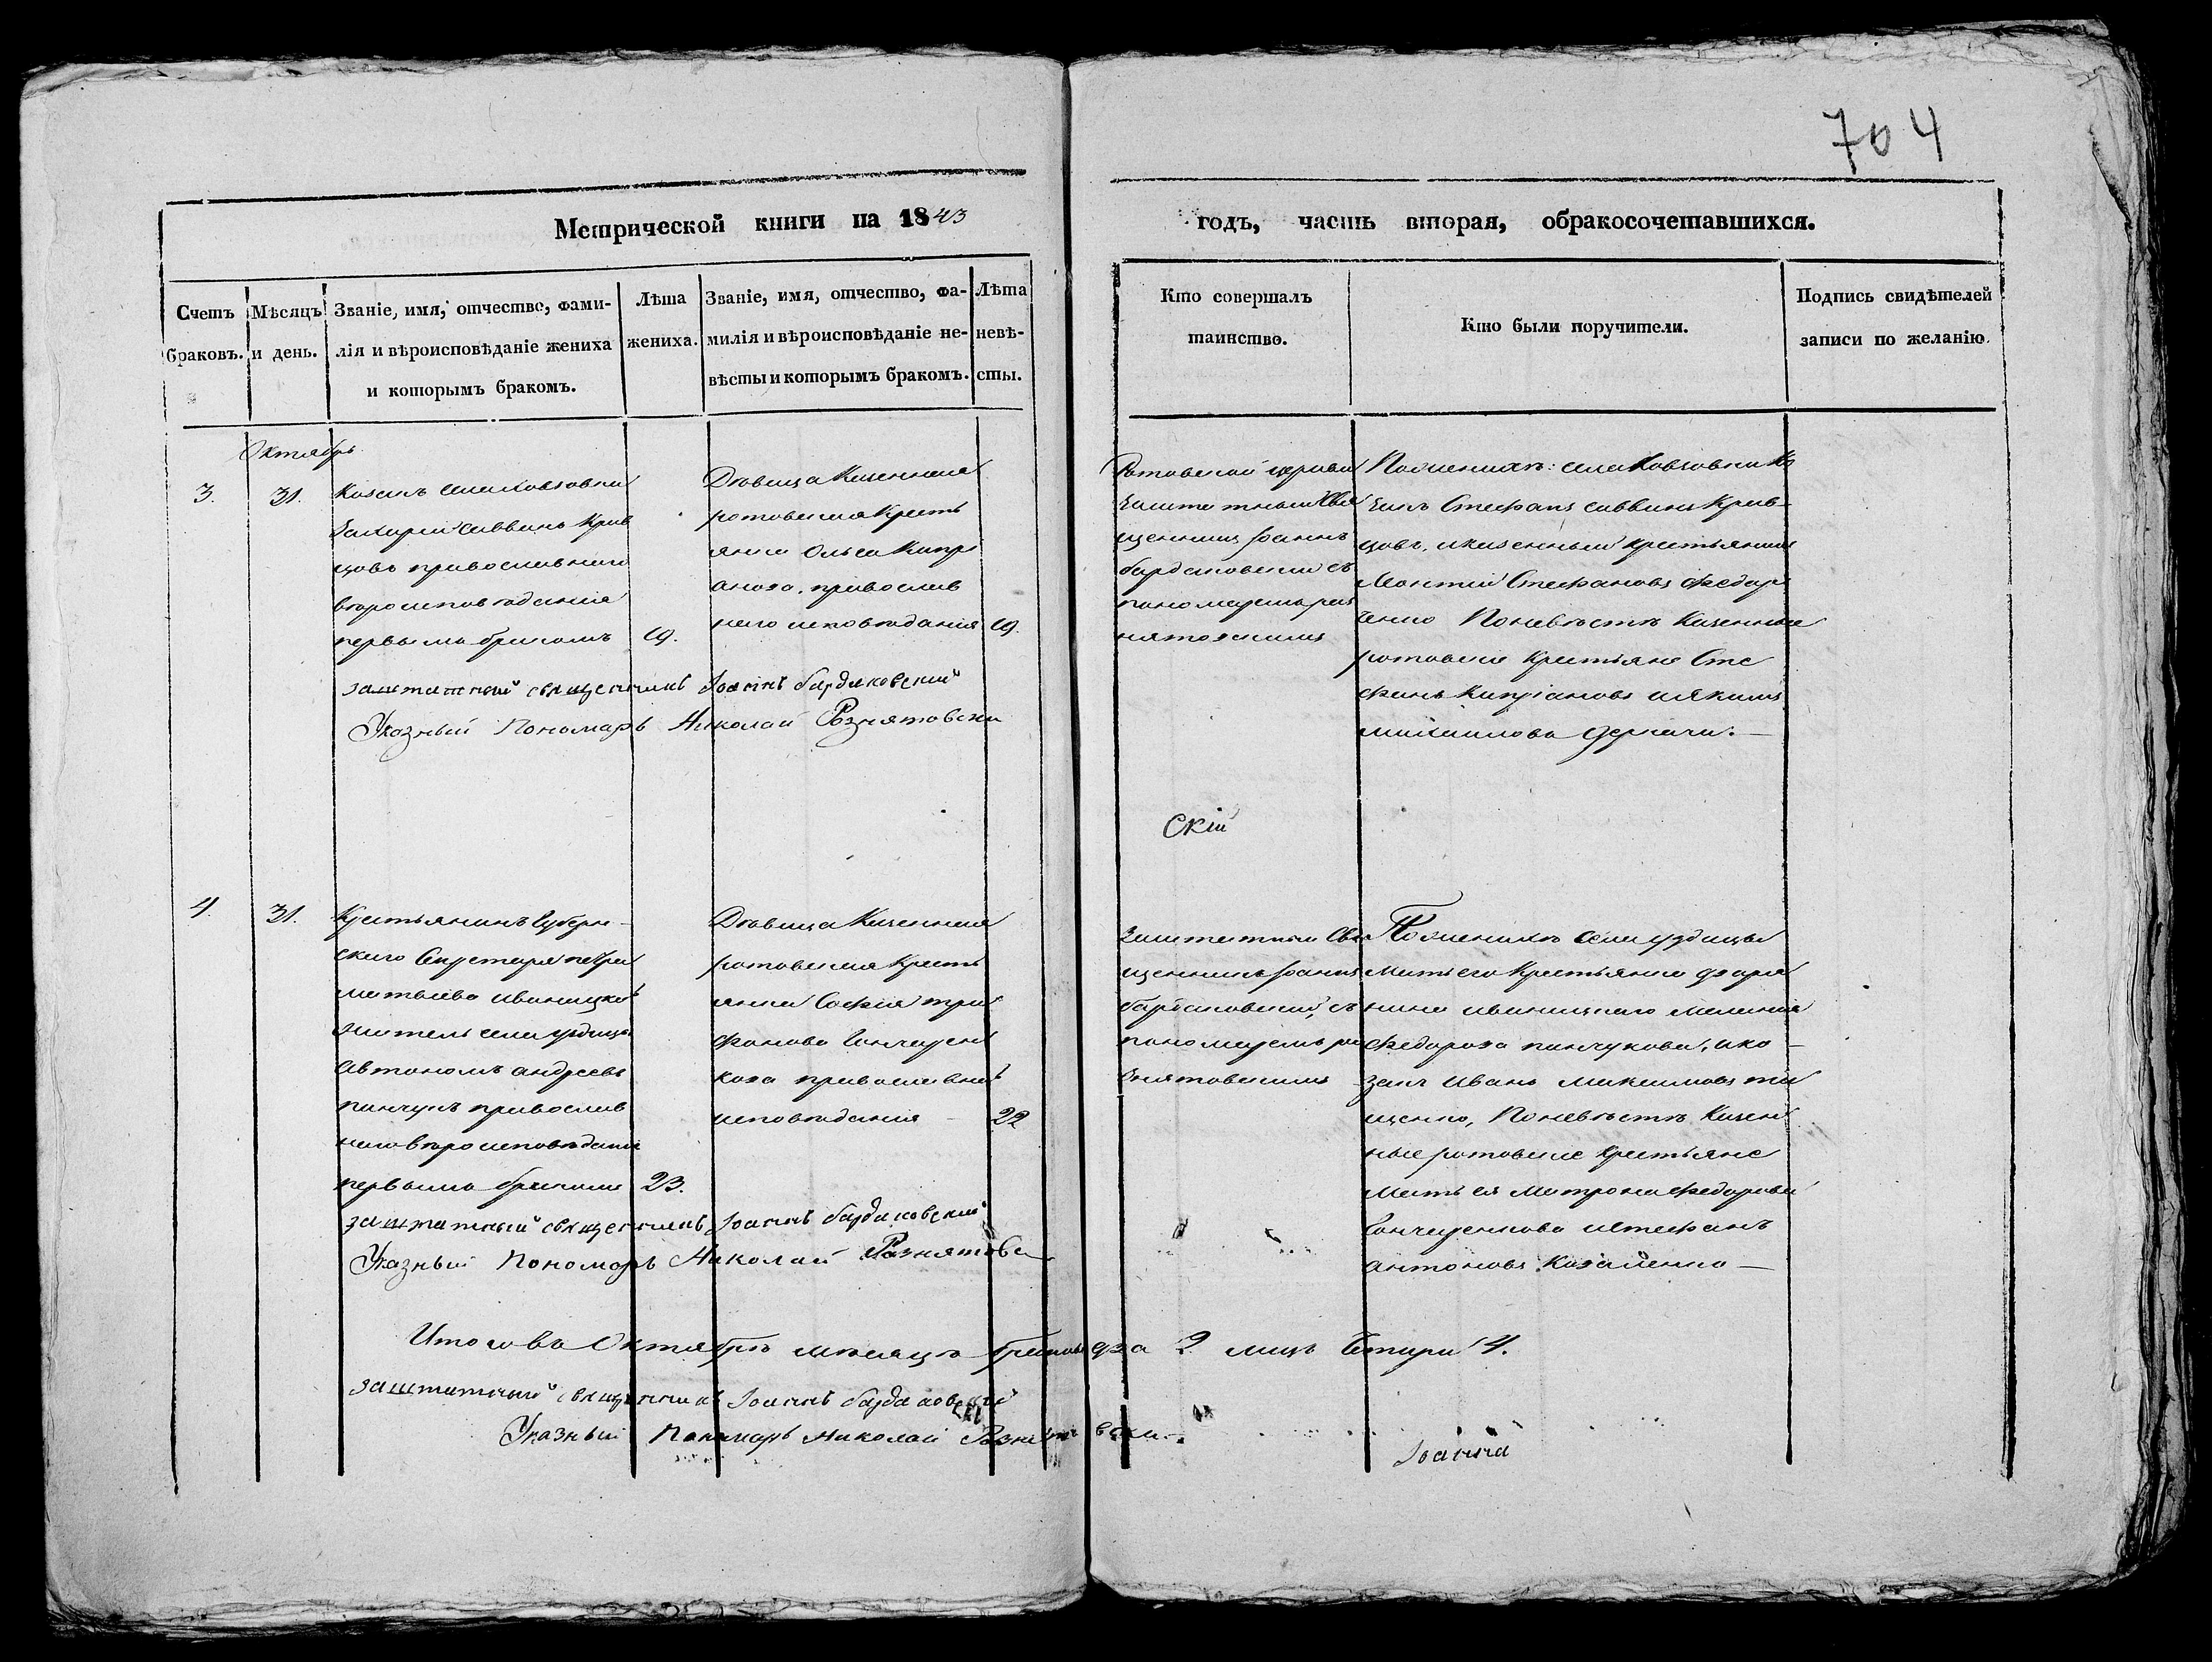 704
Метрической книги на 1843
годъ, часть вторая, обракосочетавшихся.
Счетъ браковъ.
Мѣсяцъ и день.
Званіе, имя, отчество, фами-
лія и вѣроисповѣданіе жениха
и которымъ бракомъ.
Лѣта
жениха.
Званіе, имя, отчество, фа-
милія и вѣроисповѣданіе не-
вѣсты и которымъ бракомъ.
Лѣта
невѣ-
сты.
Кто совершалъ
таинство.
Кто были поручители.
Подпись свидѣтелей
записи по желанію.
Октябрь
3.
31.
Козакъ села
Захарий Саввинъ Крив
цовъ православнаго
вѣроисповѣдания
первымъ бракомъ
19.
Дѣвица Казенная
ротовская Кресть
янка Ольга Кипри
анова, православ
наго исповѣдания
19.
Ротовской церкви
Заштатный Свя
щенникъ Іоаннъ
бардаковский съ
пономаремъ раз
нятовскимъ
По женихѣ: села Ко
закъ Стефанъ Саввинъ Крив-
цовъ, и казенный крестьянинъ
Стефановъ Федор
ченко По невѣстѣ Казенные
ротовские Крестьяне Сте
фанъ Кипріановъ и Якимъ
Михайлова
заштатный священникъ Іоаннъ бардаковский
Указный Пономарь Николай Рознятовски
Скій
4.
31.
Крестьянинъ Губерн-
скаго Секретаря петра
матвѣева иваницкаго
житель села удайцы
Автономъ андреевъ
панчукъ православ
наго вѣроисповѣдания
первымъ бракомъ
23.
Дѣвица Казенная
ротовская Кресть
янка София три
фонова Гончарен
кова православнаго
исповѣдания -
22
Заштатный Свя
щенникъ Іоаннъ
бардаковский, съ
пономаремъ ра
знятовскимъ
По женихѣ села удайцы
Мать его Крестьянка дворя
нина иваницкаго
Федорова панчукова, и ко-
закъ Иванъ Максимовъ ти
щенко, По невѣстѣ Казен
ные ротовские Крестьяне
Мать ея Матрона Федорова
Гончаренкова и Стефанъ
антоновъ Коваленко -
заштатный священникъ Іоаннъ бардаковский
Указный Пономарь Николай Рознятовс
Итого въ Октябрѣ мѣсяцѣ браковъ два 2 лицъ Четыри 4.
заштатный священникъ Іоаннъ бардаковский
Указный Пономарь Николай Рознятовски
Іоанна